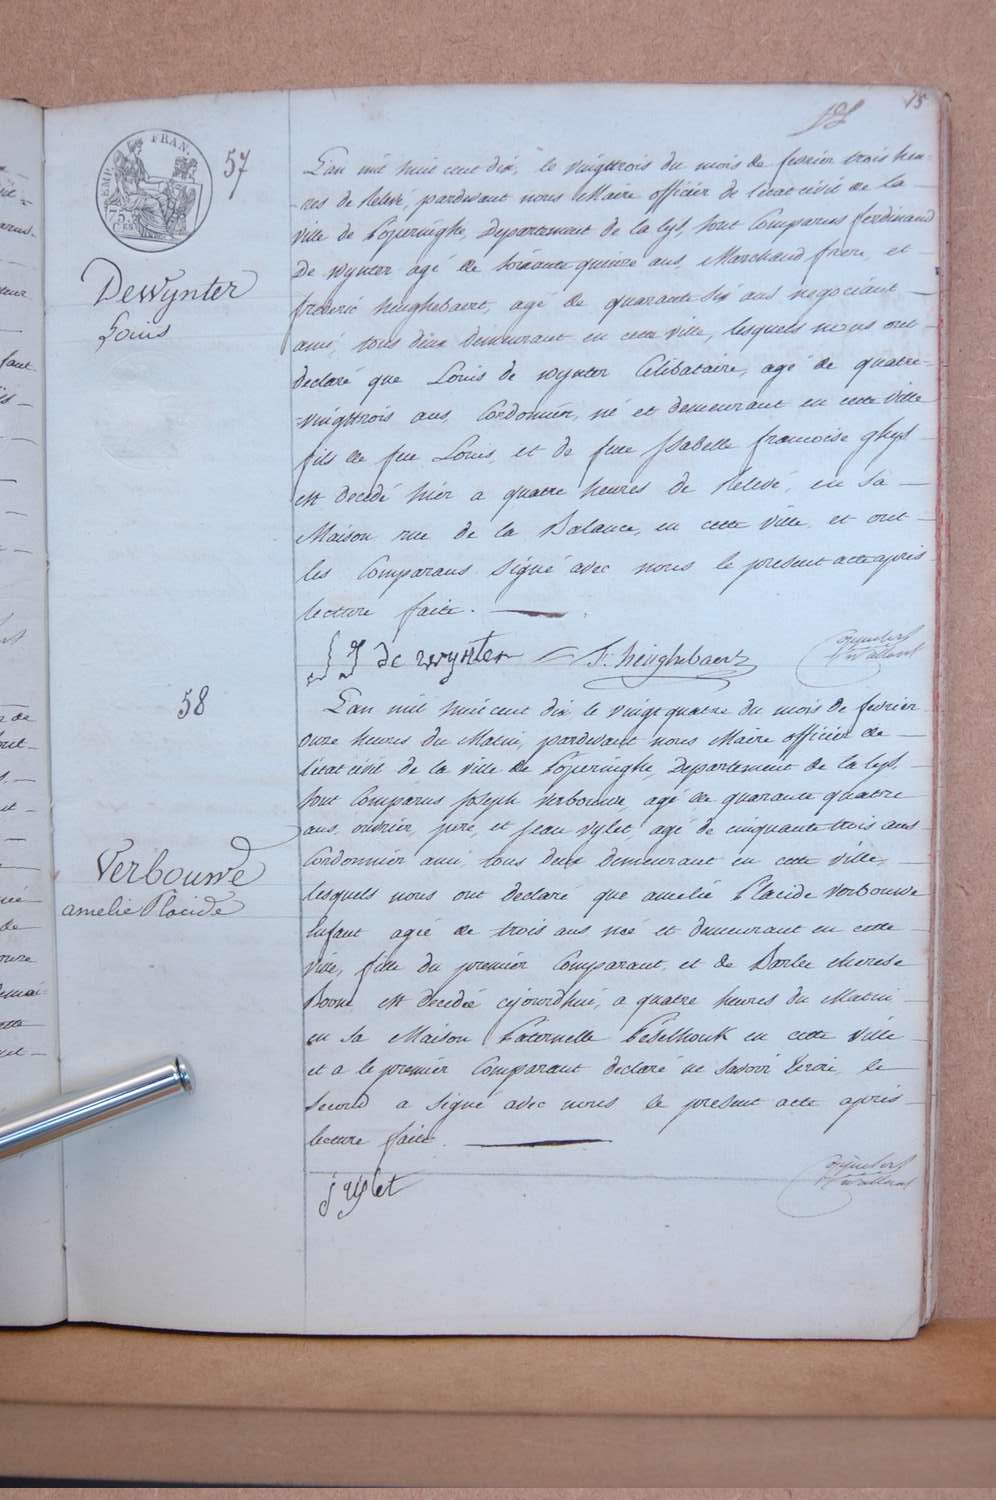 15
EMP. FRAN.
75
CEN.
57
DeWynter
Louis
L'an mil huit cent dix, le vingttrois du mois de fevrier trois heu-
-res de relevé, pardevant nous Maire officier de l'etat civil de la
ville de Poperinghe, Departement de la Lys, sont Comparus ferdinand
De wynter agé de soixante quinze ans, Marchand frere, et
frederic heughebaert, agé de quarante six ans negociant
ami, tous deux demeurant en cette ville, lesquels nous ont
declaré que Louis de wynter Célibataire, agé de quatre-
-vingttrois ans, Cordonnier, né et demeurant en cette ville
fils de feu Louis, et de feue Isabelle francoise ghys
est decedé hier a quatre heures de relevé, en sa
Maison rue de la Balance, en cette ville, et ont
les Comparans signé avec nous le present acte apres
lecture faite.
de wynter
f: heughebaert
58
Verbouwe
amelie Placide
L'an mil huit cent dix le vingt quatre du mois de fevrier
onze heures du Matin, pardevant nous Maire officier de
l'etat civil de la ville de Poperinghe, Departement de la Lys,
sont Comparus Joseph verbouwe, agé de quarante quatre
ans, ouvrier, pere, et Jean vylet agé de cinquante trois ans
Cordonnier ami, tous deux demeurant en cette ville,
lesquels nous ont declaré que amelie Placide verbouwe
Enfant agée de trois ans née et demeurant en cette
ville, fille du premier Comparant, et de Barbe therese
Boone est decedée cejourdhui, a quatre heures du Matin
en sa Maison Paternelle Peselhouk en cette ville
et a le premier Comparant declaré ne savoir Ecrire, le
second a signé avec nous le present acte apres
lecture faite.
j vylet